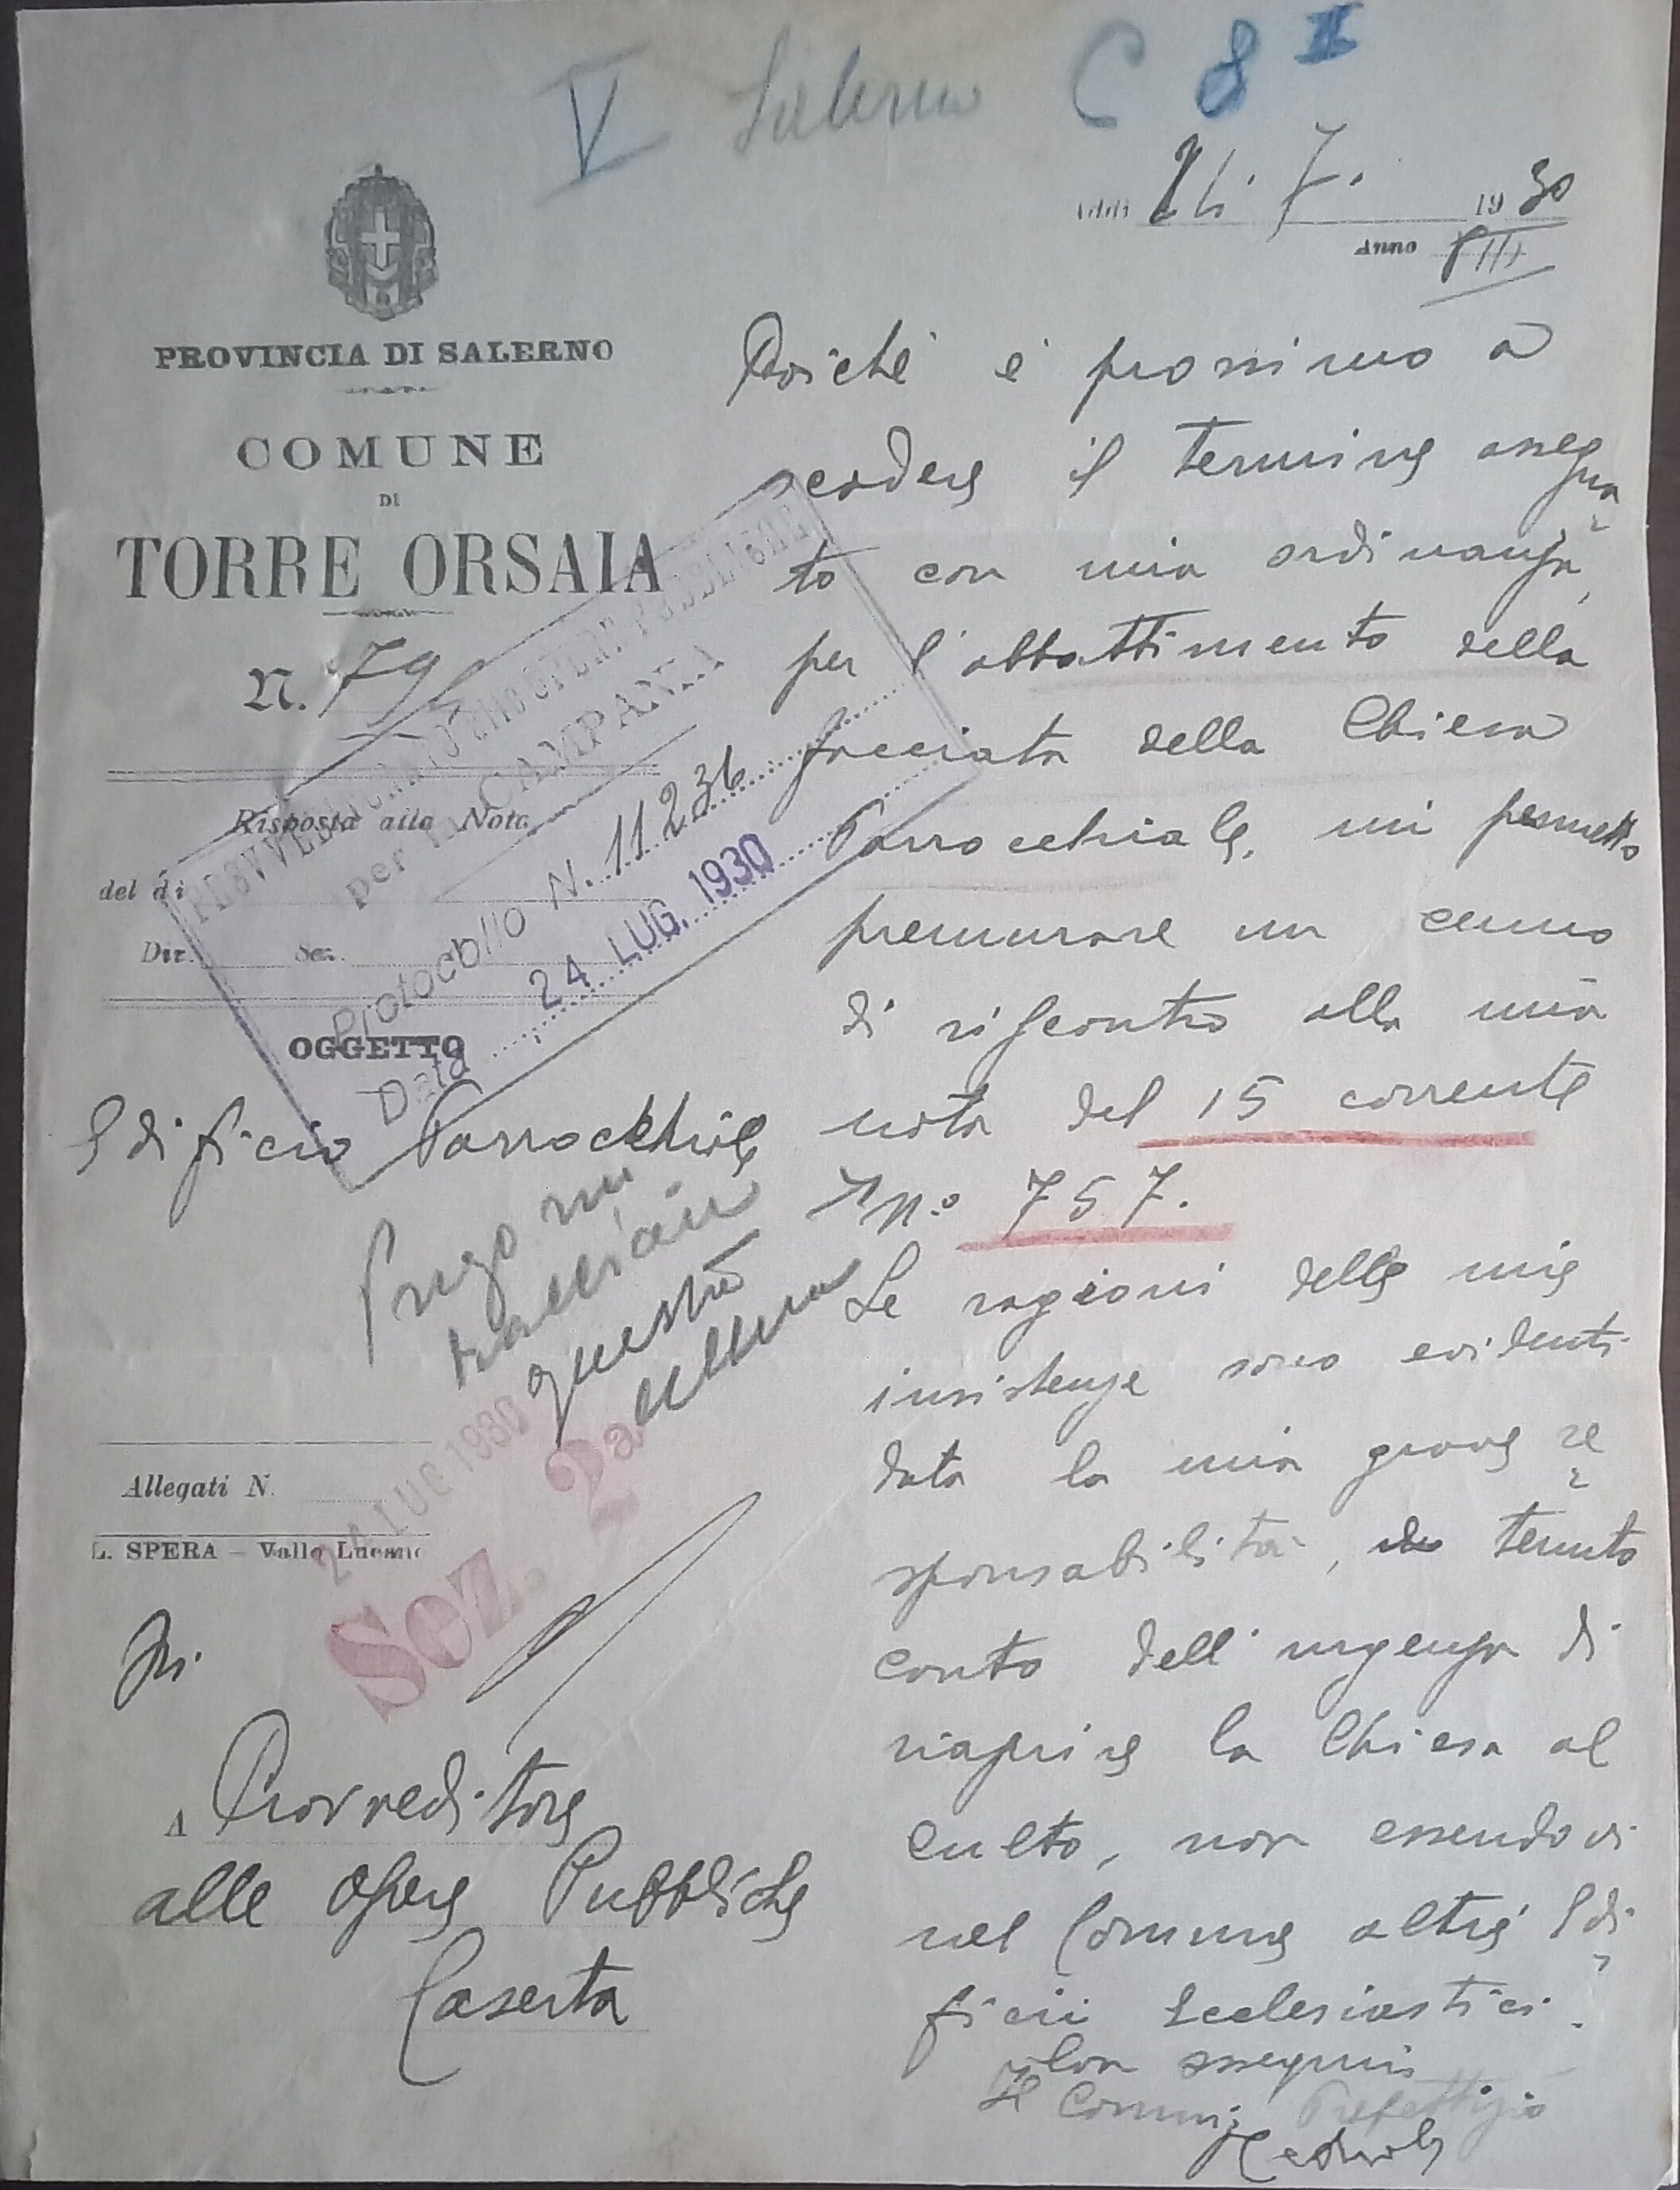 V Salerno C 8 II
addì 21. 7. 1930
Anno VIII
PROVINCIA DI SALERNO
COMUNE
DI
TORRE ORSAIA
N.
Risposta alla Nota
del dì
Div. Sez.
OGGETTO
Edificio Parrocchiale
PROVVEDITORATO ALLE OPERE PUBBLICHE
per la CAMPANIA
Protocollo N. 11236
Data 24 LUG. 1930
Prego mi
questa
24 LUG 1930
Sez. 2a
Allegati N.
L. SPERA - Vallo Lucano
A Provveditore
alle Opere Pubbliche
Caserta
Poichè è prossimo a
scadere il termine assegna
to con mia ordinanza,
per l'abbattimento della
facciata della Chiesa
Parrocchiale, mi permetto
premurare un cenno
di riscontro alla mia
nota del 15 corrente
n° 757.
Le ragioni delle mie
insistenze sono evidenti
data la mia grave re
sponsabilità, tenuto
conto dell'urgenza di
riaprire la Chiesa al
culto, non essendovi
nel Comune altri Edi
ficii Ecclesiastici.
Con ossequii
Il Commis Prefettizio